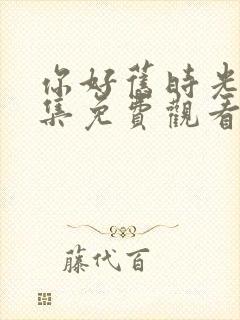 你好舊時光
集免費觀看
藤代百